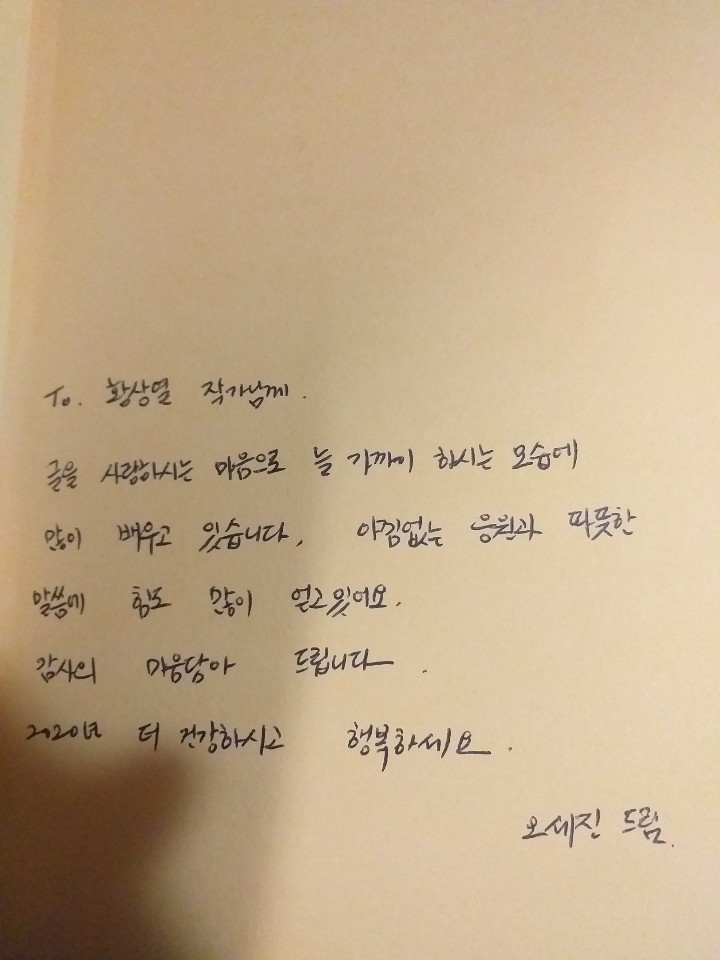 To. 황상열 작가님께.
글을 사랑하시는 마음으로 늘 가까이 하시는 모습에
많이 배우고 있습니다. 아낌없는 응원과 따뜻한
말씀에 힘도 많이 얻고 있어요.
감사의 마음담아 드립니다.
2020년 더 건강하시고 행복하세요.
오세진 드림.